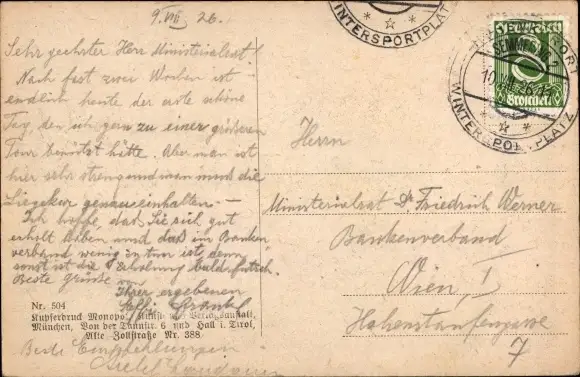 9. VIII 26.
Sehr geehrter Herr Ministerialrat!
Nach fast zwei Wochen ist
endlich heute der erste schöne
Tag, den ich gern zu einer größeren
Tour benützt hätte. Aber man ist
hier sehr streng und man muß die
Liegekur genau einhalten. –
Ich hoffe, daß Sie sich gut
erholt haben und daß im Banken
verband wenig zu tun ist, denn
sonst ist die Erholung bald futsch.
Beste Grüße
Ihrer ergebenen
Nr. 504
Kupferdruck Monopol, Kunst- und Verlagsanstalt,
München, Von der Tannstr. 6 und Hall i. Tirol,
Alte Zollstraße Nr. 388
Beste Empfehlungen
WINTERSPORTPLATZ
Österreich
SEMMERING 2
WINTERSPORTPLATZ
Groschen
Herrn
Ministerialrat Dr Friedrich Werner
Bankenverband
Wien, I
Hohenstaufengasse
7